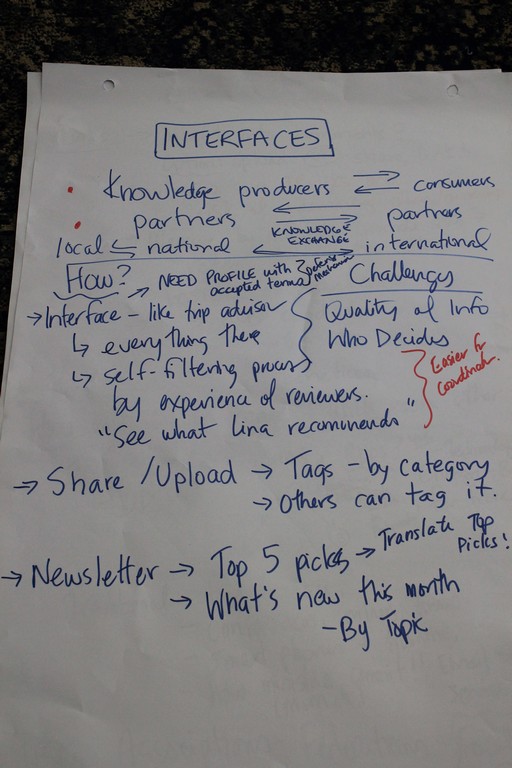 INTERFACES
• Knowledge producers ⇄ consumers
• partners ⇄ partners
KNOWLEDGE EXCHANGE
local ⇆ national ↔ international
How?
→ NEED PROFILE with accepted terms?
Challenges
→ Interface – like trip advisor
Quality of Info
↳ everything there
Who Decides
↳ self-filtering process
Easier for Coordinator.
by experience of reviewers.
"See what Lina recommends"
→ Share / Upload → Tags – by category
→ Others can tag it.
→ Newsletter → Top 5 picks → Translate Top Picks!
→ What's new this month
– By Topic